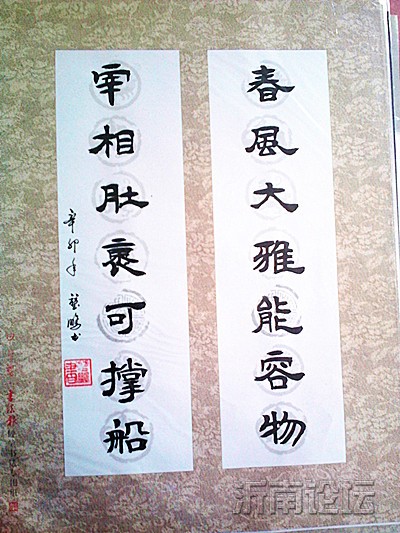 春風大雅能容物
宰相肚裏可撑船
辛卯年
沂南论坛